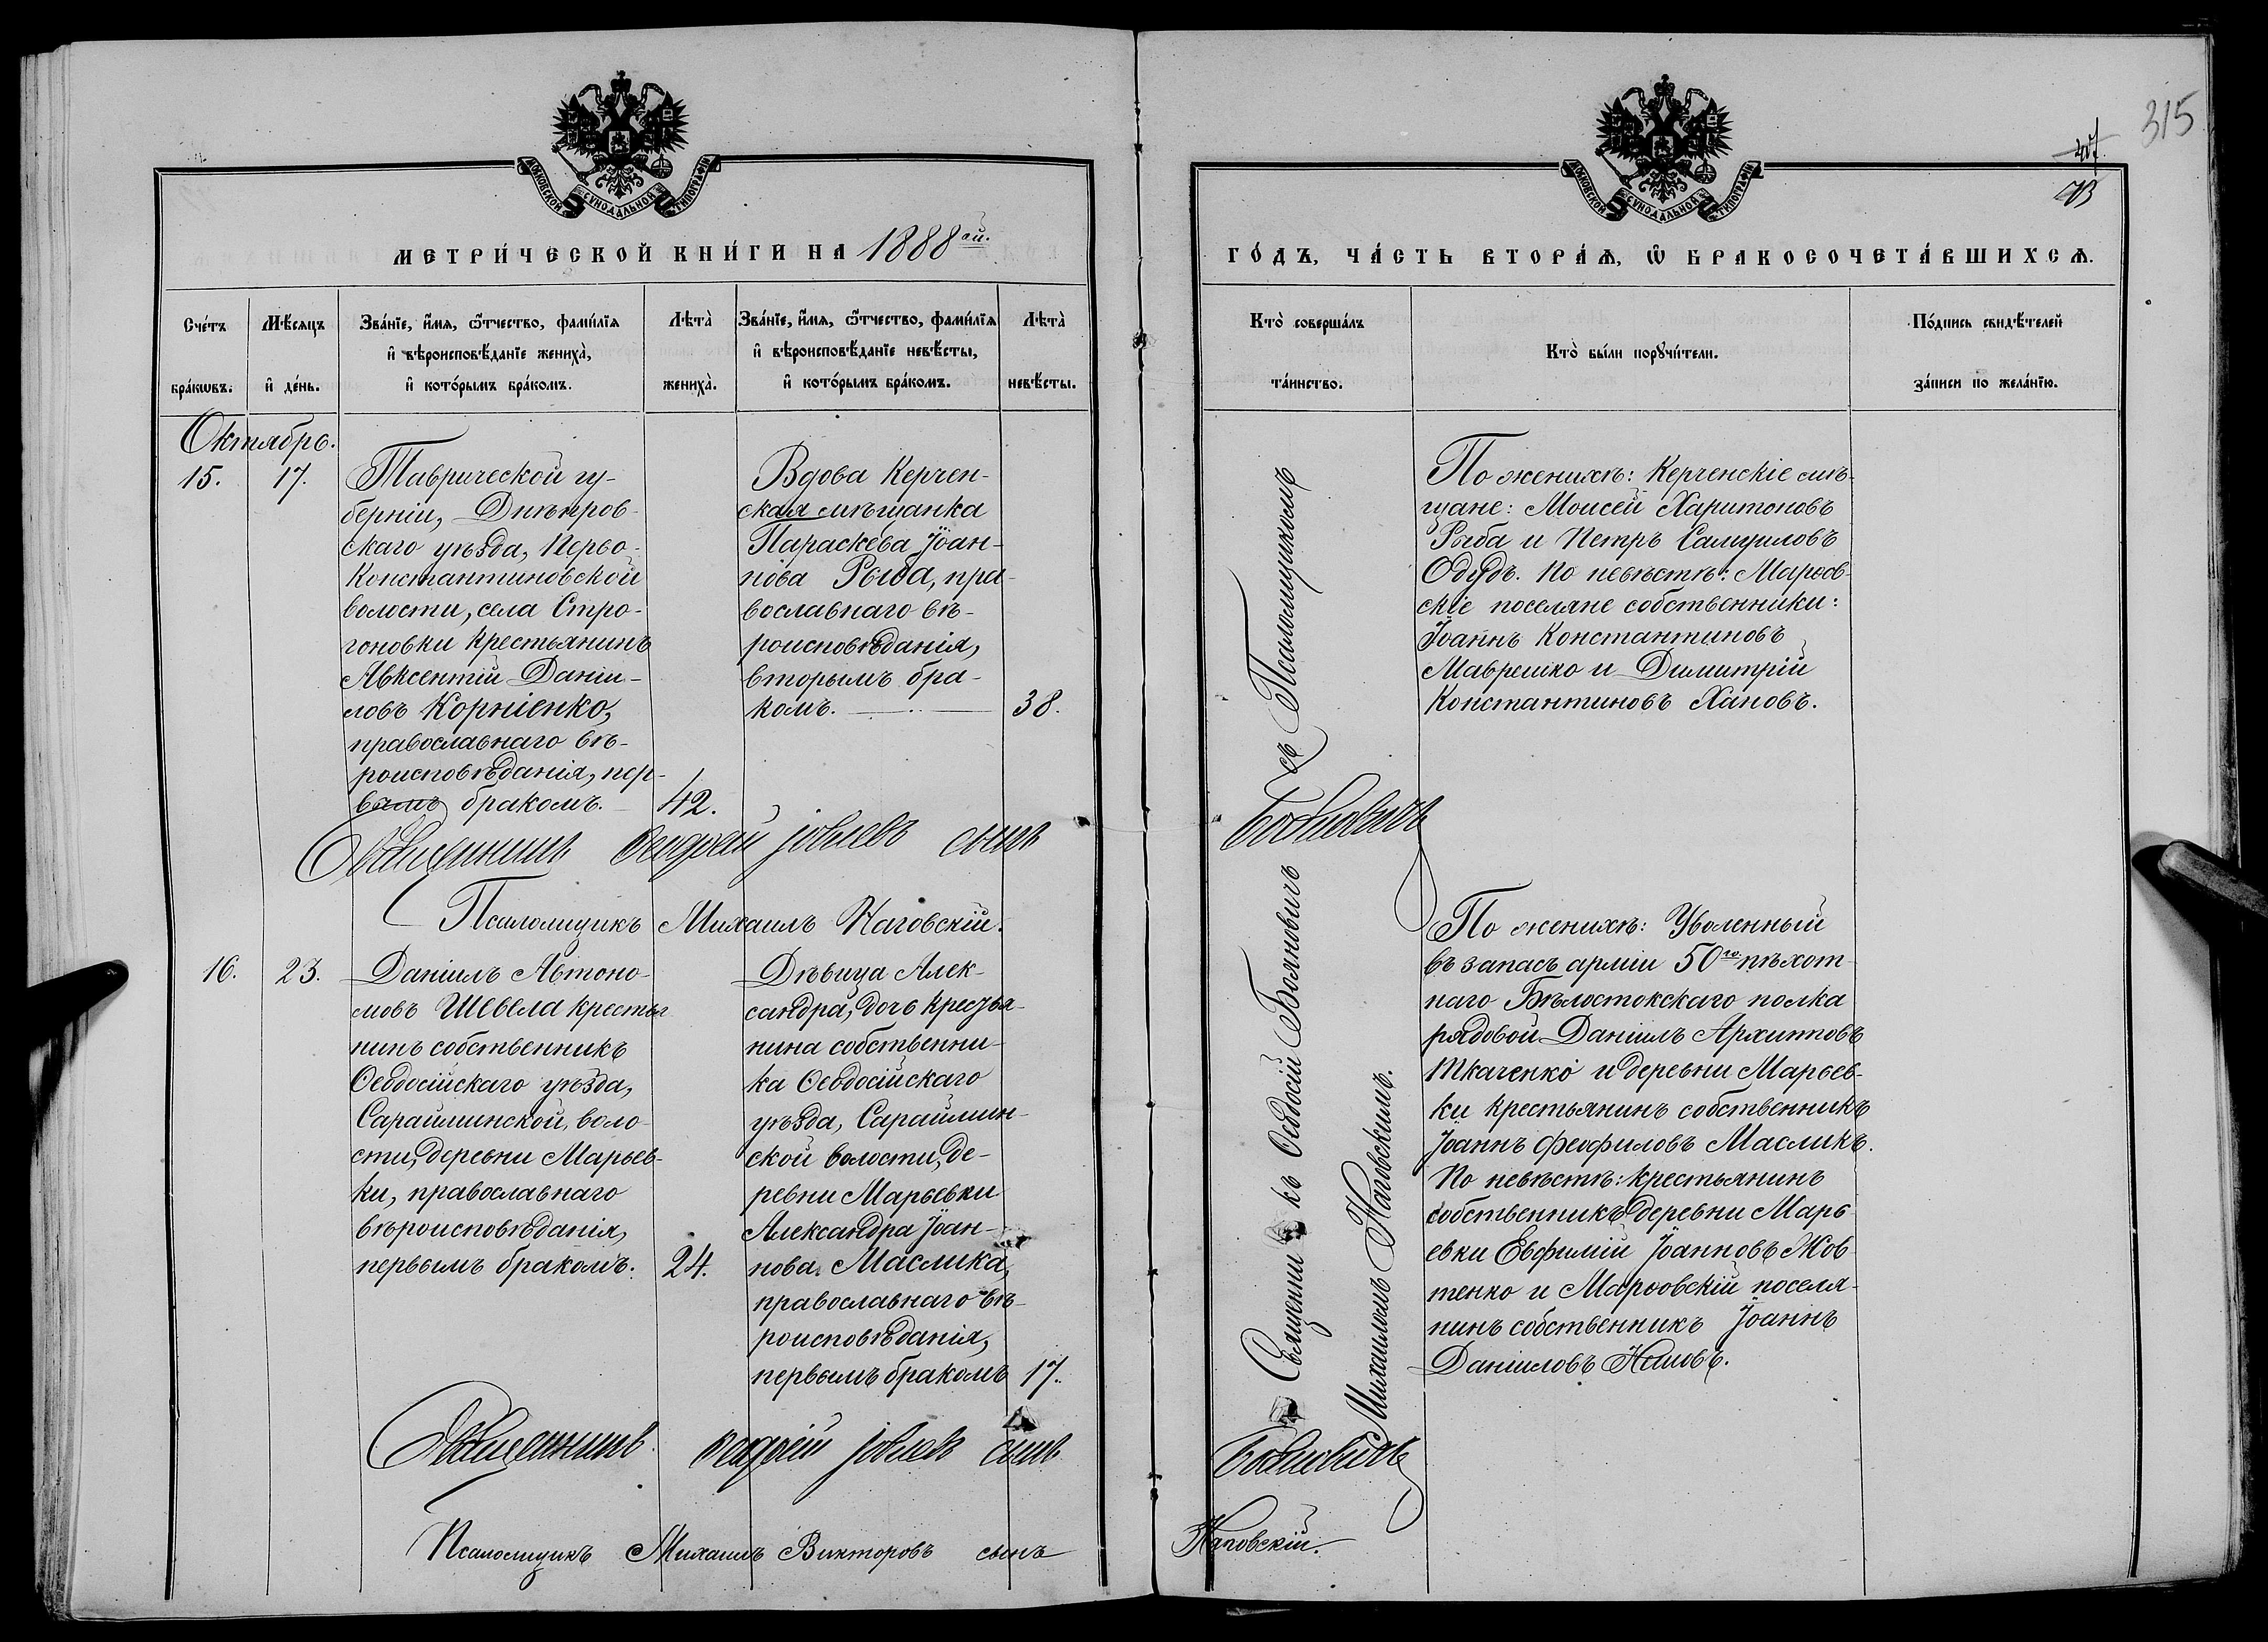 315
МОСКОВСКОЙ СѴНОДАЛЬНОЙ ТИПОГРАФІИ
МОСКОВСКОЙ СѴНОДАЛЬНОЙ ТИПОГРАФІИ
МЕТРИ́ЧЕСКОЙ КНИ́ГИ НА 1888 ой.
ГО́ДЪ, ЧА́СТЬ ВТОРА́Ѧ, Ѽ БРАКОСОЧЕТА́ВШИХСѦ.
Сче́тъ бра́кѡвъ.
Мѣ́сяцъ и҆ де́нь.
Зва́нїе, и҆́мя, ѻ҆́тчество, фами́лїя и҆ вѣроисповѣ́данїе жениха̀, и҆ кото́рымъ бра́комъ.
Лѣта̀ жениха̀.
Зва́нїе, и҆́мя, ѻ҆́тчество, фами́лїя и҆ вѣроисповѣ́данїе невѣ́сты, и҆ кото́рымъ бра́комъ.
Лѣта̀ невѣ́сты.
Кто̀ соверша́лъ та́инство.
Кто̀ бы́ли порꙋчи́тели.
По́дпись свидѣ́телей за́писи по жела́нїю.
Октябрь.
15. 17.
Таврической гу-
берніи, Днѣпров-
скаго уѣзда, Перво-
Константиновской
волости, села Стро-
гоновки крестьянинъ
Авксентій Даніи-
ловъ Корніенко,
православнаго вѣ-
роисповѣданія, пер-
вымъ бракомъ.
42.
Вдова Керчен-
ская мѣщанка
Параскева Іоан-
нова Рыба, пра-
вославнаго вѣ-
роисповѣданія,
вторымъ бра-
комъ.
38.
По женихѣ: Керченскіе мѣ-
щане: Моисей Харитоновъ
Рыба и Петръ Самуиловъ
Одудъ. По невѣстѣ: Марѳов-
скіе поселяне собственники:
Іоаннъ Константиновъ
Маврешко и Димитрій
Константиновъ Хановъ.
Священникъ Ѳеодосій Іовлевъ сынъ Бояновичъ
Псаломщикъ Михаилъ Наговскій.
16. 23.
Даніилъ Автоно-
мовъ Шевела крестья
нинъ собственникъ
Ѳеодосійскаго уѣзда,
Сарайминской воло-
сти, деревни Марьев-
ки, православнаго
вѣроисповѣданія,
первымъ бракомъ.
24.
Дѣвица Алек-
сандра, дочь крестья-
нина собственни-
ка Ѳеодосійскаго
уѣзда, Сараймин-
ской волости, де-
ревни Марьевки
Александра Іоан-
нова Маслика,
православнаго вѣ-
роисповѣданія,
первымъ бракомъ
17.
Священникъ Ѳеодосій Бояновичъ съ Псаломщикомъ
Михаиломъ Наговскимъ.
По женихѣ: Уволенный
въ запасъ арміи 50го пѣхот-
наго Бѣлостокскаго полка
рядовой Даніилъ Архиповъ
Ткаченко и деревни Марьев-
ки крестьянинъ собственникъ
Іоаннъ Феофиловъ Масликъ.
По невѣстѣ: крестьянинъ
собственникъ деревни Марь
евки Евфимій Іоанновъ Жов-
тенко и Марѳовскій поселя-
нинъ собственникъ Іоаннъ
Даніиловъ
Священникъ Ѳеодосій Іовлевъ сынъ Бояновичъ
Псаломщикъ Михаилъ Викторовъ сынъ Наговскій.